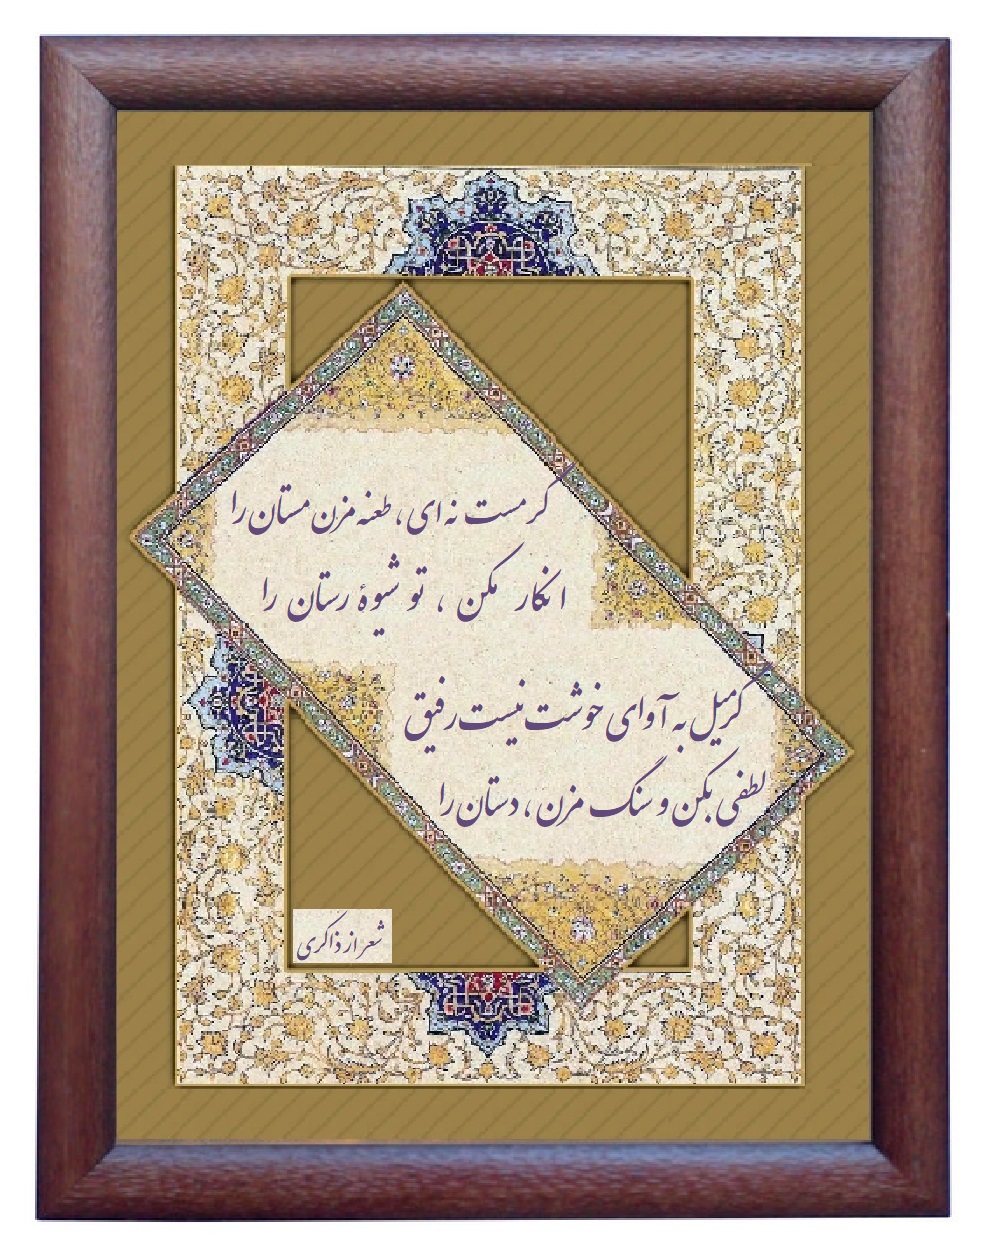 گر مست نه ای، طعنه مزن مستان را
انکار مکن ، تو شیوهٔ رستان را
گر میل به آوای خوشت نیست رفیق
لطفی بکن و سنگ مزن، دستان را
شعر از ذاکری